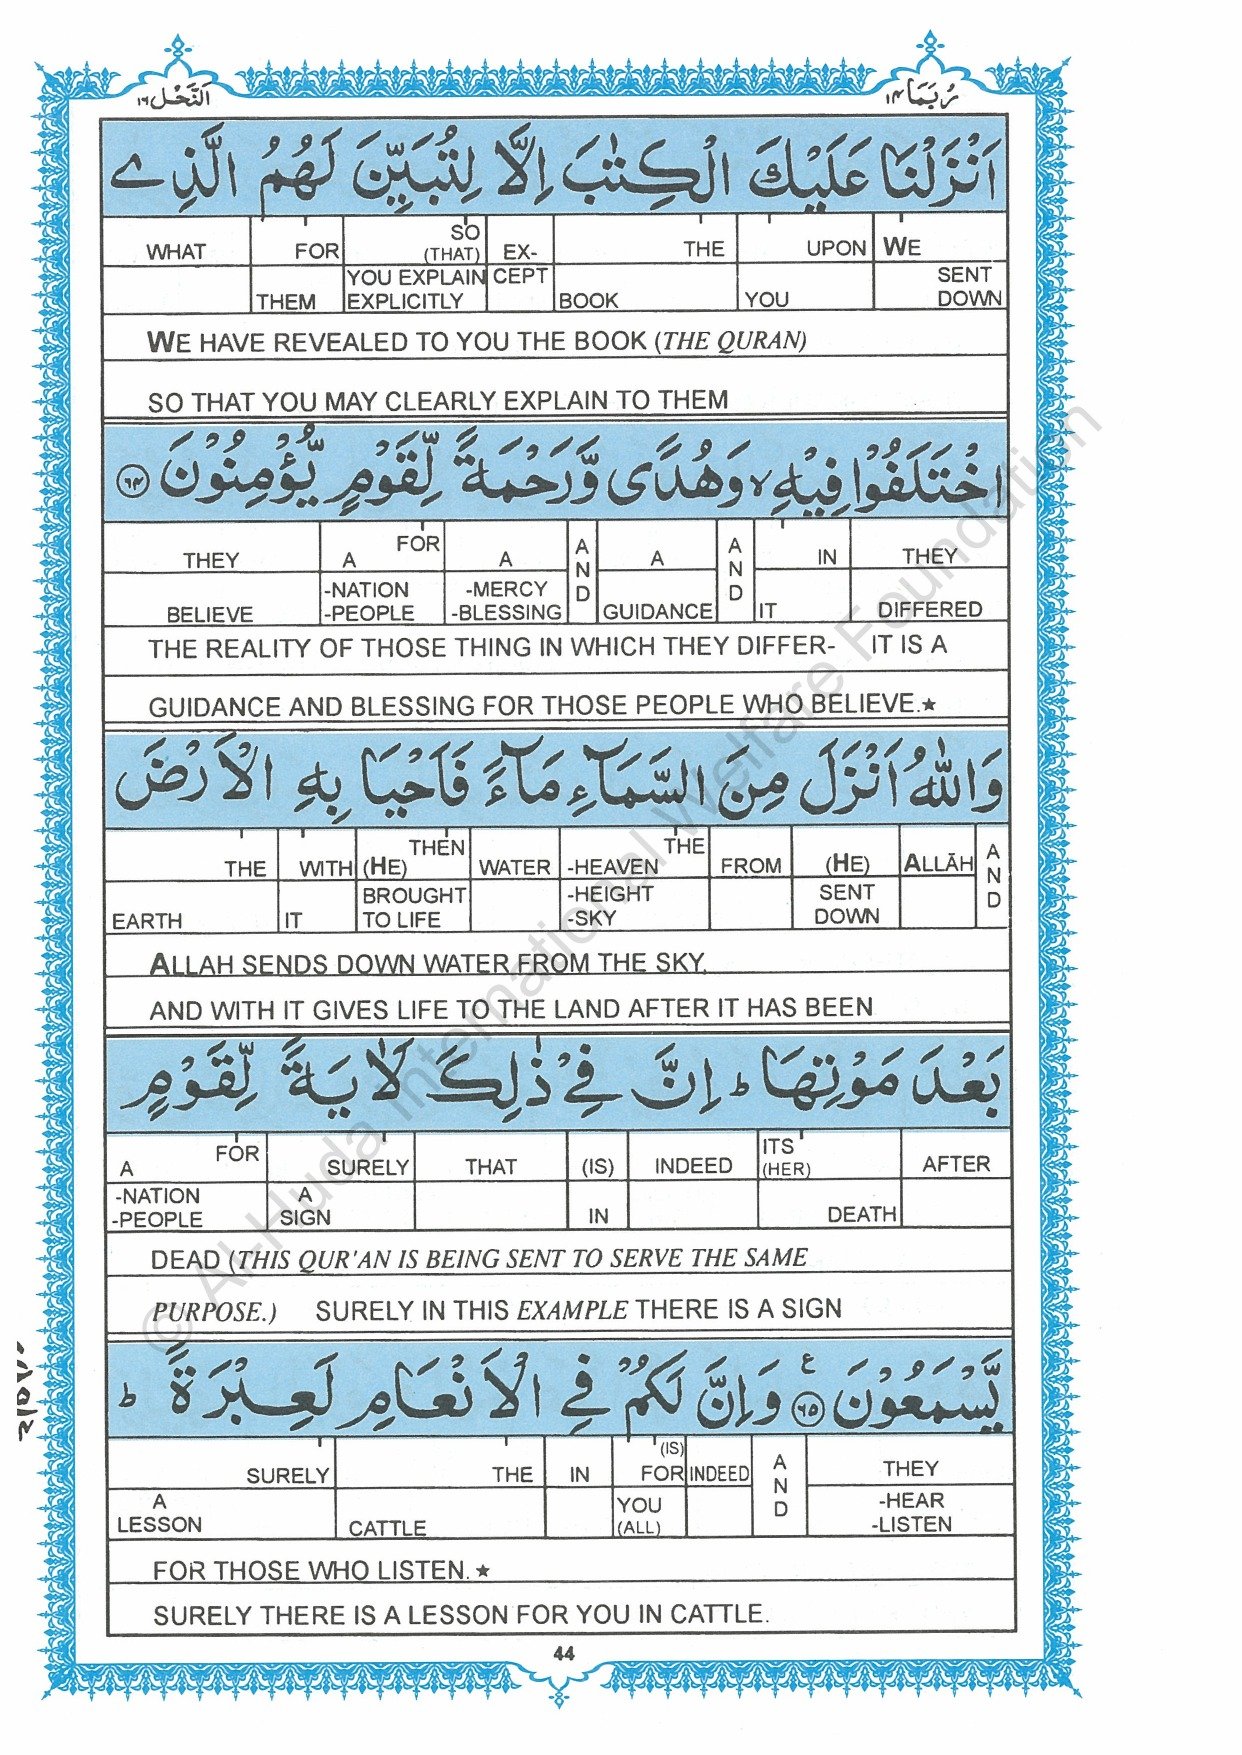 اَلنَّحْل ١٦
رُبَمَا ١٤
اَنْزَلْنَا عَلَيْكَ الْكِتٰبَ اِلَّا لِتُبَيِّنَ لَهُمُ الَّذِي
WHAT FOR SO (THAT) EX- THE UPON WE
THEM YOU EXPLAIN EXPLICITLY CEPT BOOK YOU SENT DOWN
WE HAVE REVEALED TO YOU THE BOOK (THE QURAN)
SO THAT YOU MAY CLEARLY EXPLAIN TO THEM
اخْتَلَفُوْا فِيْهِ ۙ وَهُدًى وَّرَحْمَةً لِّقَوْمٍ يُّؤْمِنُوْنَ ﴿٦٤﴾
THEY A FOR A AND A AND IN THEY
BELIEVE -NATION -PEOPLE -MERCY -BLESSING GUIDANCE IT DIFFERED
THE REALITY OF THOSE THING IN WHICH THEY DIFFER- IT IS A
GUIDANCE AND BLESSING FOR THOSE PEOPLE WHO BELIEVE.★
وَاللّٰهُ اَنْزَلَ مِنَ السَّمَآءِ مَآءً فَاَحْيَا بِهِ الْاَرْضَ
THE WITH THEN (HE) WATER THE -HEAVEN FROM (HE) ALLĀH AND
EARTH IT BROUGHT TO LIFE -HEIGHT -SKY SENT DOWN
ALLAH SENDS DOWN WATER FROM THE SKY.
AND WITH IT GIVES LIFE TO THE LAND AFTER IT HAS BEEN
بَعْدَ مَوْتِهَا ؕ اِنَّ فِيْ ذٰلِكَ لَاٰيَةً لِّقَوْمٍ
A FOR SURELY THAT (IS) INDEED ITS (HER) AFTER
-NATION -PEOPLE A SIGN IN DEATH
DEAD (THIS QUR'AN IS BEING SENT TO SERVE THE SAME
PURPOSE.) SURELY IN THIS EXAMPLE THERE IS A SIGN
يَّسْمَعُوْنَ ع ﴿٦٥﴾ وَاِنَّ لَكُمْ فِي الْاَنْعَامِ لَعِبْرَةً ؕ
SURELY THE IN (IS) FOR INDEED AND THEY
A LESSON CATTLE YOU (ALL) -HEAR -LISTEN
FOR THOSE WHO LISTEN. ★
SURELY THERE IS A LESSON FOR YOU IN CATTLE.
44
© Al-Huda International Welfare Foundation